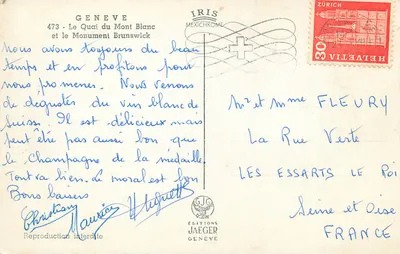 GENEVE
473 - Le Quai du Mont Blanc
et le Monument Brunswick
IRIS
MEXICHROME
Nous avons toujours du beau
temps et en profitons pour
nous promener. Nous venons
de degustés du vin blanc de
Suisse. Il est délicieux mais
peut être pas aussi bon que
le champagne de la médaille.
Tout va bien. Le moral est bon
Bons baisers
Christian Maurice Huguette
Reproduction interdite
EDITIONS
JAEGER
GENEVE
30
ZÜRICH
HELVETIA
Mr et Mme FLEURY
La Rue Verte
LES ESSARTS LE ROI
Seine et Oise
FRANCE